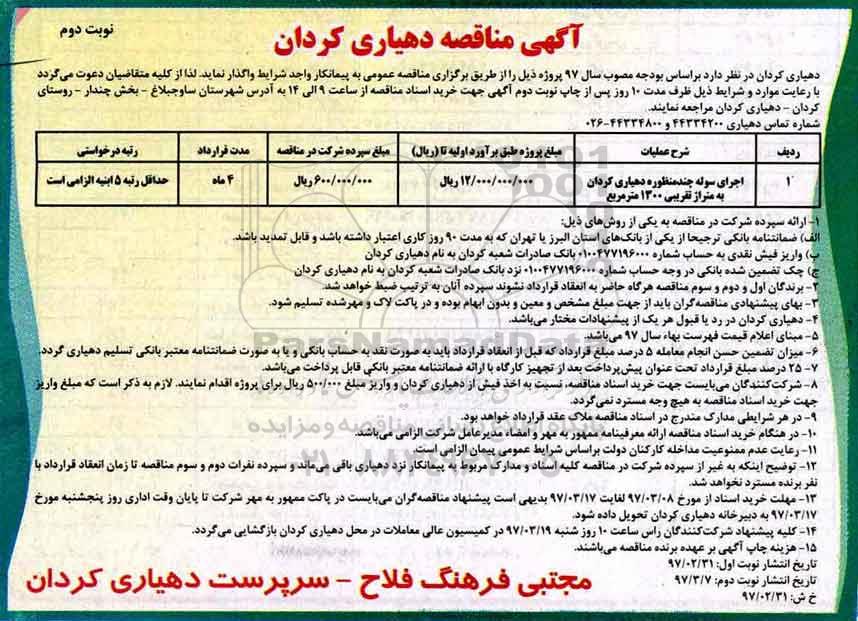 آگهی مناقصه دهیاری کردان
نوبت دوم
دهیاری کردان در نظر دارد براساس بودجه مصوب سال ۹۷ پروژه ذیل را از طریق برگزاری مناقصه عمومی به پیمانکار واجد شرایط واگذار نماید. لذا از کلیه متقاضیان دعوت می‌گردد
با رعایت موارد و شرایط ذیل ظرف مدت ۱۰ روز پس از چاپ نوبت دوم آگهی جهت خرید اسناد مناقصه از ساعت ۹ الی ۱۴ به آدرس شهرستان ساوجبلاغ - بخش چندار - روستای
کردان - دهیاری کردان مراجعه نمایند.
شماره تماس دهیاری ۴۴۳۳۴۲۰۰ و ۴۴۳۳۴۸۰۰-۰۲۶
ردیف | شرح عملیات | مبلغ پروژه طبق برآورد اولیه تا (ریال) | مبلغ سپرده شرکت در مناقصه | مدت قرارداد | رتبه درخواستی
۱ | اجرای سوله چندمنظوره دهیاری کردان | ۱۲/۰۰۰/۰۰۰/۰۰۰ ریال | ۶۰۰/۰۰۰/۰۰۰ ریال | ۴ ماه | حداقل رتبه ۵ ابنیه الزامی است
به متراژ تقریبی ۱۳۰۰ مترمربع
۱- ارائه سپرده شرکت در مناقصه به یکی از روش‌های ذیل:
الف) ضمانتنامه بانکی ترجیحا از یکی از بانک‌های استان البرز یا تهران که به مدت ۹۰ روز کاری اعتبار داشته باشد و قابل تمدید باشد.
ب) واریز فیش نقدی به حساب شماره ۰۱۰۰۴۷۷۱۹۶۰۰۰ بانک صادرات شعبه کردان به نام دهیاری کردان
ج) چک تضمین شده بانکی در وجه حساب شماره ۰۱۰۰۴۷۷۱۹۶۰۰۰ نزد بانک صادرات شعبه کردان به نام دهیاری کردان
۲- برندگان اول و دوم و سوم مناقصه هرگاه حاضر به انعقاد قرارداد نشوند سپرده آنان به ترتیب ضبط خواهد شد.
۳- بهای پیشنهادی مناقصه‌گران باید از جهت مبلغ مشخص و معین و بدون ابهام بوده و در پاکت لاک و مهرشده تسلیم شود.
۴- دهیاری کردان در رد یا قبول هر یک از پیشنهادات مختار می‌باشد.
۵- مبنای اعلام قیمت فهرست بهاء سال ۹۷ می‌باشد.
۶- میزان تضمین حسن انجام معامله ۵ درصد مبلغ قرارداد که قبل از انعقاد قرارداد باید به صورت نقد به حساب بانکی و یا به صورت ضمانتنامه معتبر بانکی تسلیم دهیاری گردد.
۷- ۲۵ درصد مبلغ قرارداد تحت عنوان پیش‌پرداخت بعد از تجهیز کارگاه با ارائه ضمانتنامه معتبر بانکی قابل پرداخت می‌باشد.
۸- شرکت‌کنندگان می‌بایست جهت خرید اسناد مناقصه، نسبت به اخذ فیش از دهیاری کردان و واریز مبلغ ۵۰۰/۰۰۰ ریال برای پروژه اقدام نمایند. لازم به ذکر است که مبلغ واریز
جهت خرید اسناد مناقصه به هیچ وجه مسترد نمی‌گردد.
۹- در هر شرایطی مدارک مندرج در اسناد مناقصه ملاک عقد قرارداد خواهد بود.
۱۰- در هنگام خرید اسناد مناقصه ارائه معرفینامه ممهور به مهر و امضاء مدیرعامل شرکت الزامی می‌باشد.
۱۱- رعایت عدم ممنوعیت مداخله کارکنان دولت براساس شرایط عمومی پیمان الزامی است.
۱۲- توضیح اینکه به غیر از سپرده شرکت در مناقصه کلیه اسناد و مدارک مربوط به پیمانکار نزد دهیاری باقی می‌ماند و سپرده نفرات دوم و سوم مناقصه تا زمان انعقاد قرارداد با
نفر برنده مسترد نخواهد شد.
۱۳- مهلت خرید اسناد از مورخ ۹۷/۰۳/۰۸ لغایت ۹۷/۰۳/۱۷ بدیهی است پیشنهاد مناقصه‌گران می‌بایست در پاکت ممهور به مهر شرکت تا پایان وقت اداری روز پنجشنبه مورخ
۹۷/۰۳/۱۷ به دبیرخانه دهیاری کردان تحویل داده شود.
۱۴- کلیه پیشنهاد شرکت‌کنندگان راس ساعت ۱۰ روز شنبه ۹۷/۰۳/۱۹ در کمیسیون عالی معاملات در محل دهیاری کردان بازگشایی می‌گردد.
۱۵- هزینه چاپ آگهی بر عهده برنده مناقصه می‌باشند.
تاریخ انتشار نوبت اول: ۹۷/۰۲/۳۱
تاریخ انتشار نوبت دوم: ۹۷/۳/۷
خ ش: ۹۷/۰۲/۳۱
مجتبی فرهنگ فلاح - سرپرست دهیاری کردان
ParsNamadData
پایگاه اطلاع رسانی مناقصه و مزایده